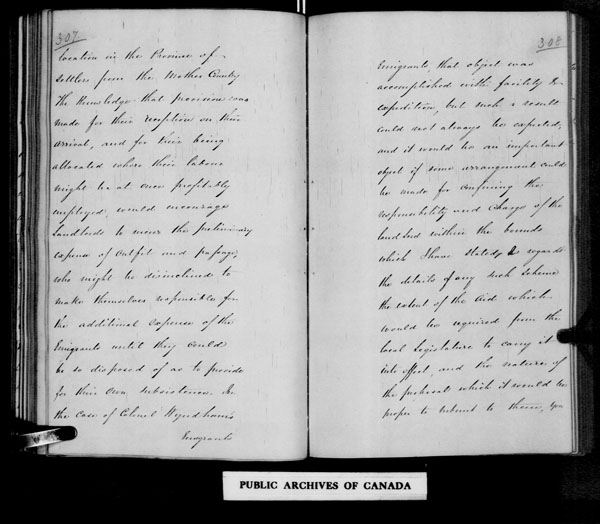 307
location in the Province of
settlers from the Mother Country
The Knowledge that provision was
made for their reception on their
arrival, and for their being
allocated where their labour
might be at once profitably
employed, would encourage
Landlords to incur the preliminary
expense of outfit and passage,
who might be disinclined to
make themselves responsible for
the additional expense of the
Emigrants until they could
be so disposed of as to provide
for their own subsistence. In
the case of Colonel Wyndham's
Emigrants
308
Emigrants, that object was
accomplished with facility &
expedition, but such a result
could not always be expected,
and it would be an important
object if some arrangement could
be made for confining the
responsibility and charge of the
landlord within the bounds
which I have stated. As regards
the details of any such scheme
the extent of the aid which
would be required from the
local Legislature to carry it
into effect, and the nature of
the proposal which it would be
proper to submit to them, you
PUBLIC ARCHIVES OF CANADA